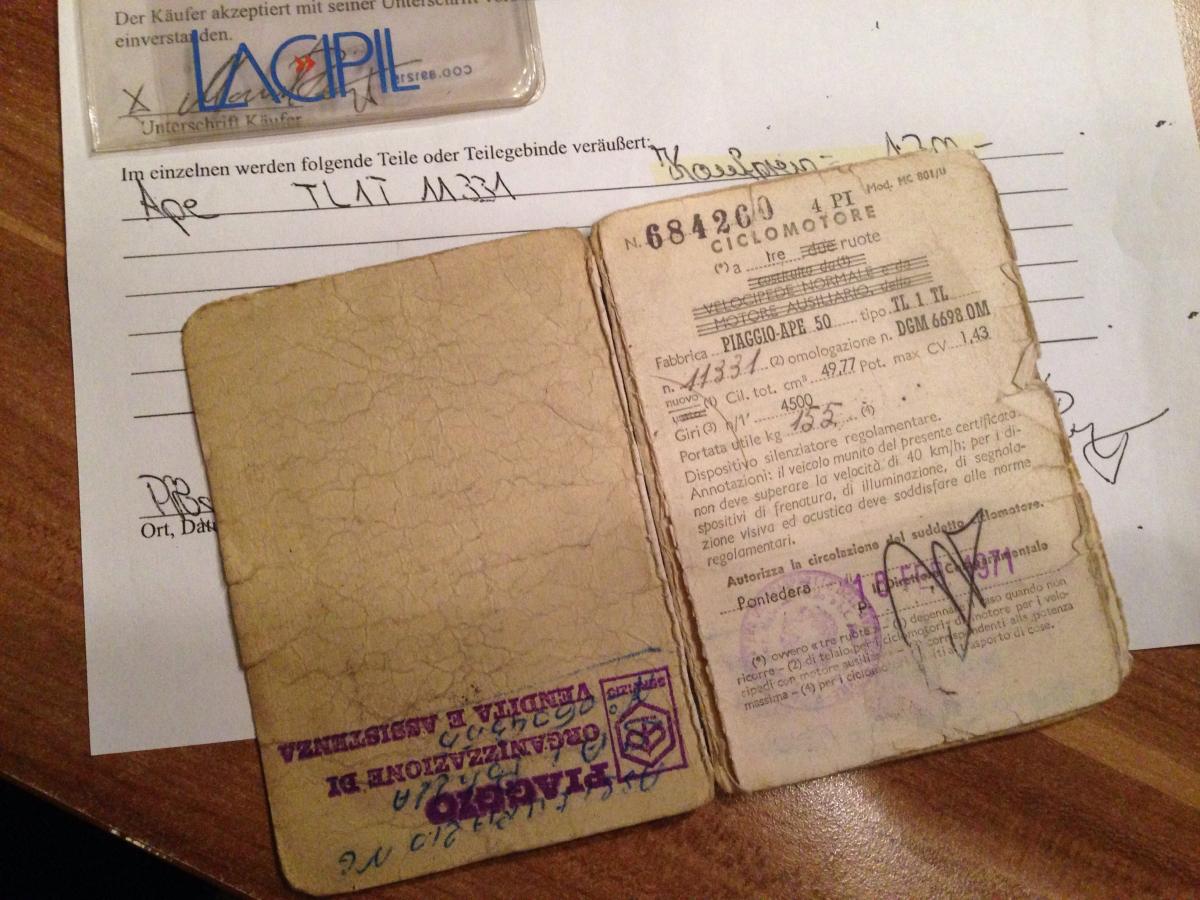 Der Käufer akzeptiert mit seiner Unterschrift
einverstanden.
LACIPIL
X
Unterschrift Käufer
Im einzelnen werden folgende Teile oder Teilegebinde veräußert:
Ape TL1T 11331
Ort,
Mod. MC 801/U
N. 684260 4 PI
CICLOMOTORE
(*) a tre due ruote
costruito da(1)
VELOCIPEDE NORMALE e da
MOTORE AUSILIARIO, dello
Fabbrica PIAGGIO-APE 50 tipo TL 1 TL
n. 11331 (2) omologazione n. DGM 6698 OM
nuovo (1) Cil. tot. cm³ 49,77 Pot. max CV 1,43
usato
Giri (3) n/1' 4500
Portata utile kg 155 (4)
Dispositivo silenziatore regolamentare.
Annotazioni: il veicolo munito del presente certificato
non deve superare la velocità di 40 km/h; per i di-
spositivi di frenatura, di illuminazione, di segnala-
zione visiva ed acustica deve soddisfare alle norme
regolamentari.
Autorizza la circolazione del suddetto ciclomotore.
Pontedera 18 FEB 1971
p. Il Direttore Compartimentale
(*) ovvero «tre ruote» (1) depennare caso quando non
ricorre – (2) di telaio per i ciclomotori, di motore per i velo-
cipedi con motore ausiliario corrispondenti alla potenza
massima – (4) per i ciclomotori trasporto di cose.
PIAGGIO
ORGANIZZAZIONE DI
VENDITA E ASSISTENZA
SERVIZIO